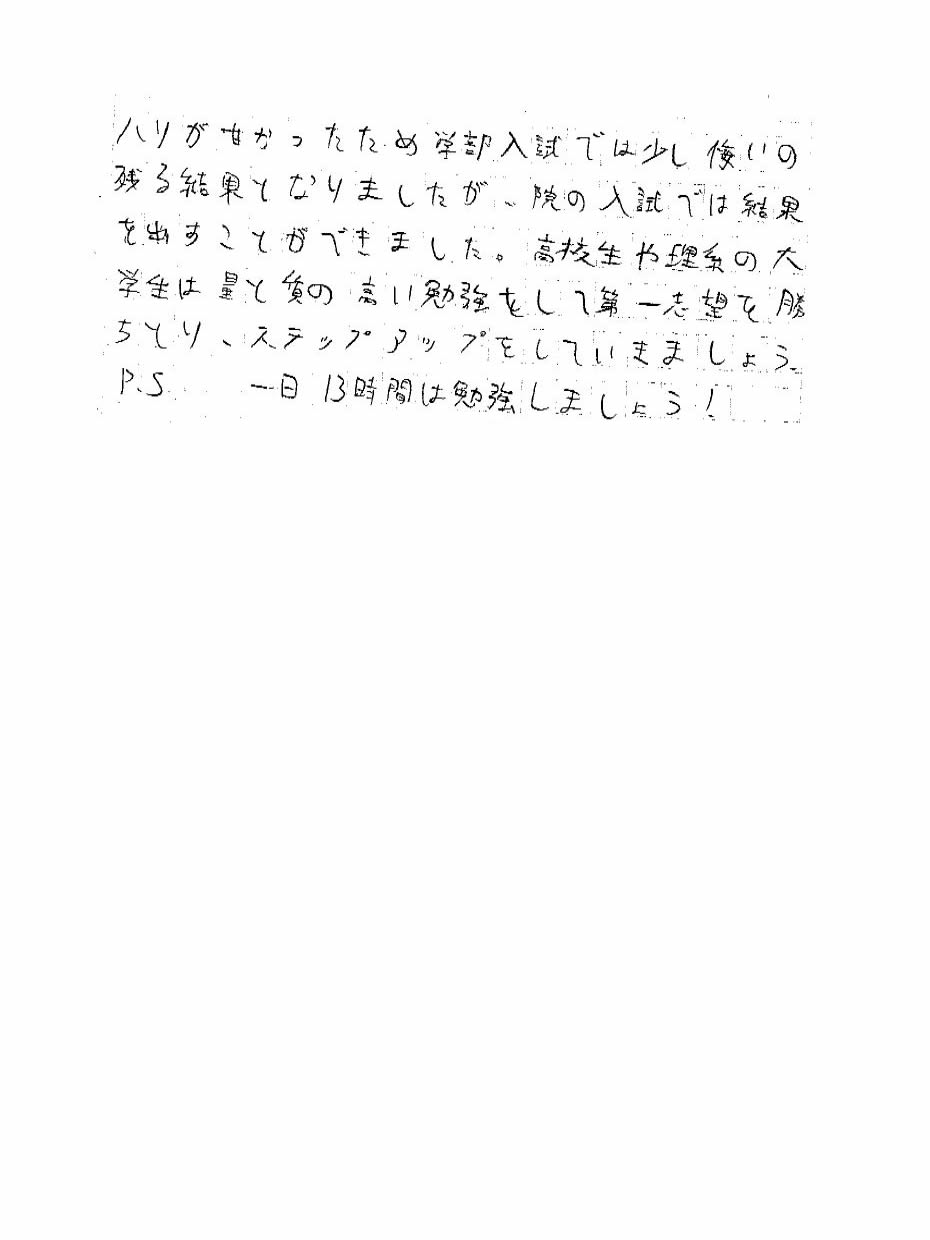 ハリが甘かったため学部入試では少し悔いの
残る結果となりましたが、院の入試では結果
を出すことができました。高校生や理系の大
学生は量と質の高い勉強をして第一志望を勝
ちとり、ステップアップをしていきましょう。
P.S. 一日13時間は勉強しましょう!